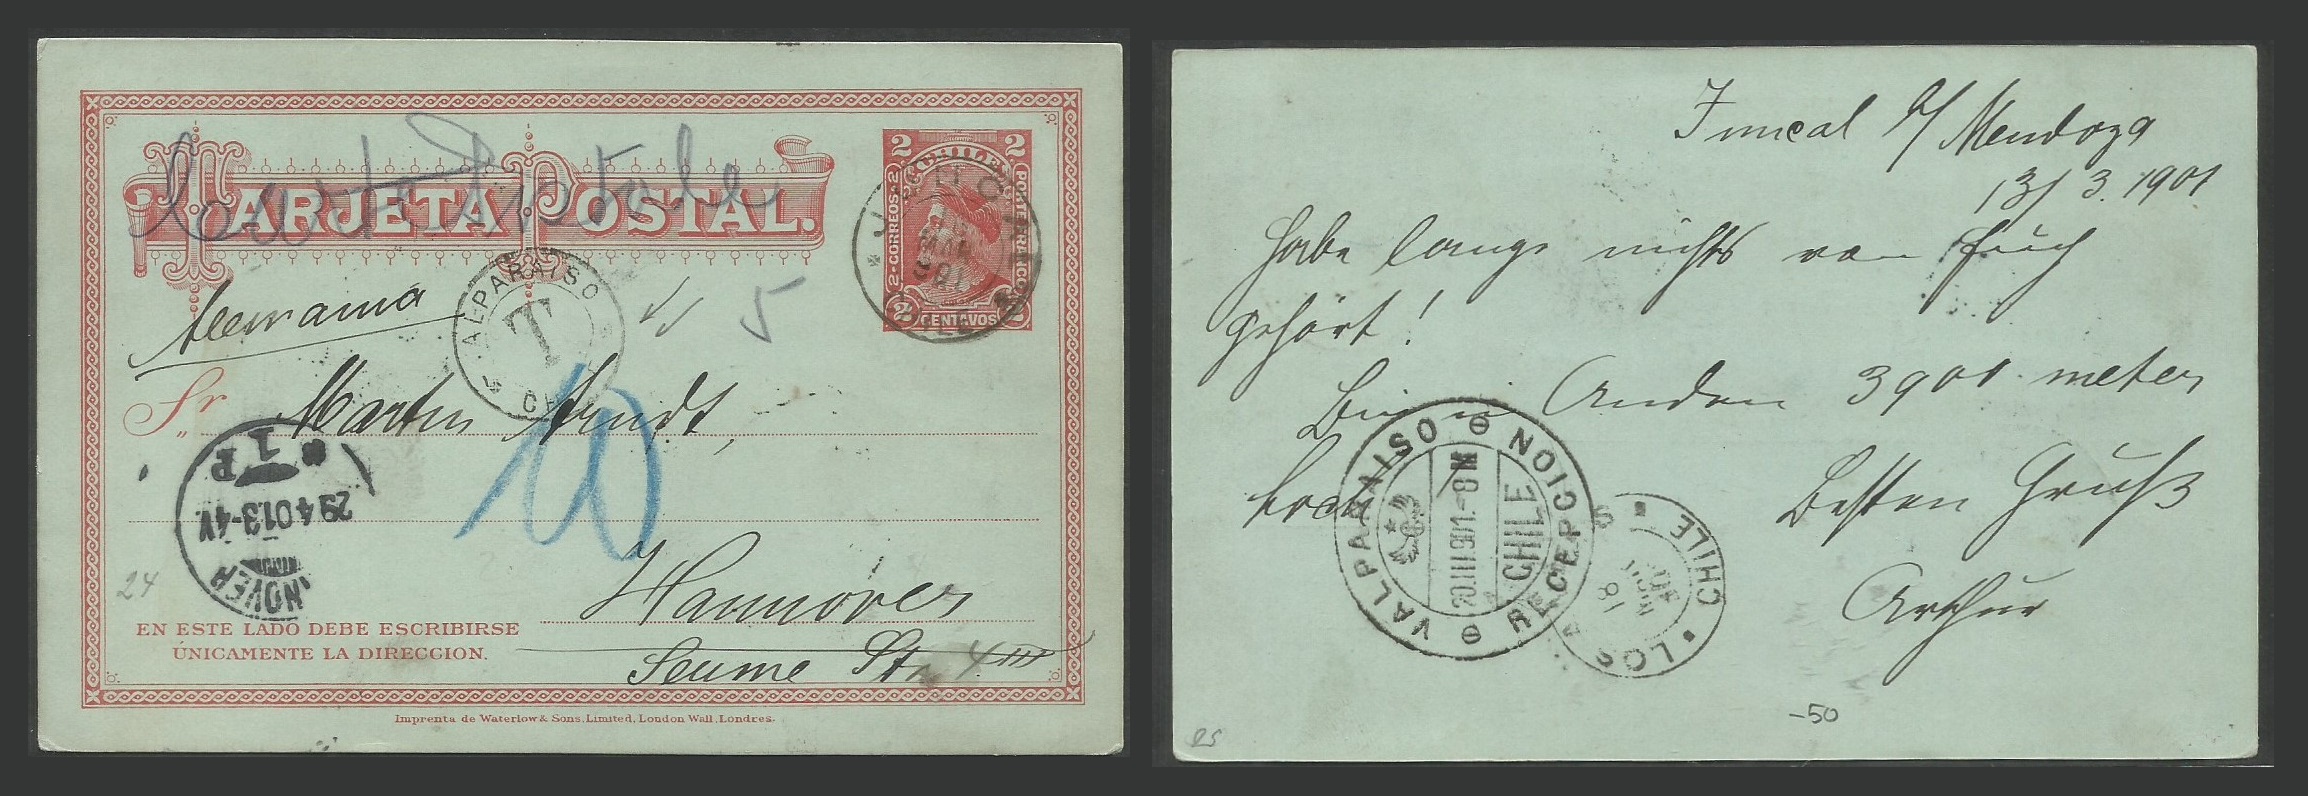 TARJETA POSTAL.
Carte Postale
2 CHILE 2
2-CORREOS-2
PORTE FRANCO
2 CENTAVOS 2
CHILE
VALPARAISO
T
5
Alemania
10
Sr.
Martin Arndt,
1 P
29 4 01.3-4N.
Hannover
24
EN ESTE LADO DEBE ESCRIBIRSE
ÚNICAMENTE LA DIRECCION.
Seume Str. 4 III
Imprenta de Waterlow & Sons, Limited, London Wall, Londres.
Juncal b/ Mendoza
13/3.1901
Habe lange nichts von Euch
gehört!
Bin in Anden 3900 meter
hoch
Besten Gruß
Arthur
VALPARAISO
RECEPCION
20.III.1901.-8 M
CHILE
LOS
CHILE
18
-50
25